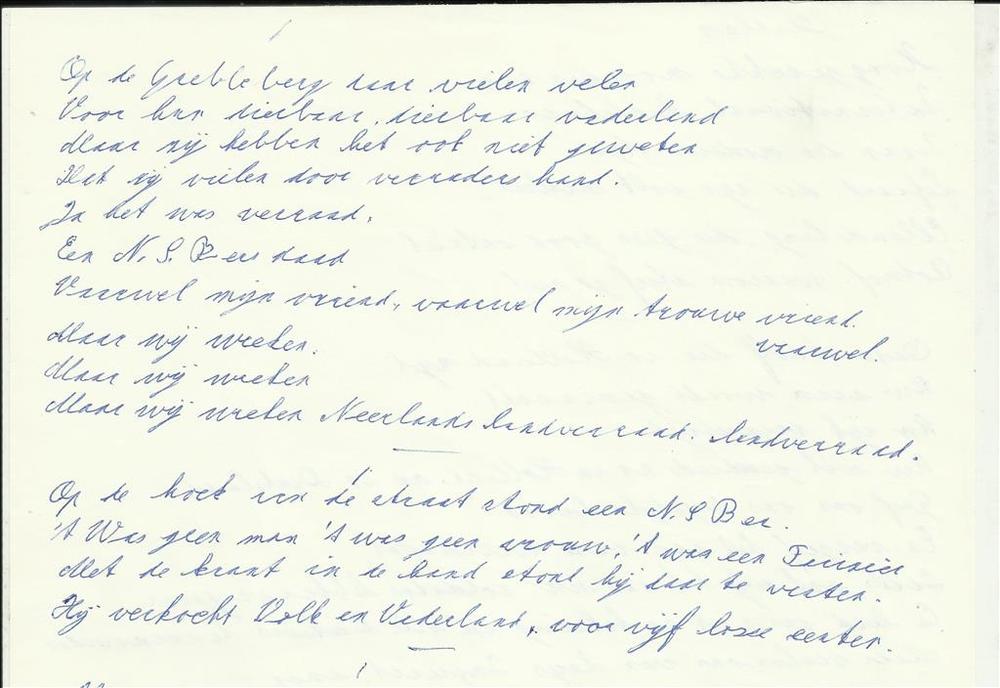 Op de Grebbeberg daar vielen velen
Voor hun dierbaar, dierbaar vaderland
Maar zij hebben het ook niet geweten
Dat zij vielen door verraders hand.
Ja het was verraad.
Een N.S.Bers daad
Vaarwel mijn vriend, vaarwel mijn trouwe vriend.
vaarwel.
Maar wij wreken.
Maar wij wreken
Maar wij wreken Neerlands landverraad. landverraad.
Op de hoek van de straat stond een N.S.Ber.
't Was geen man 't was geen vrouw, 't was een
Met de krant in de hand stond hij daar te venten.
Hij verkocht Volk en Vaderland, voor vijf losse centen.